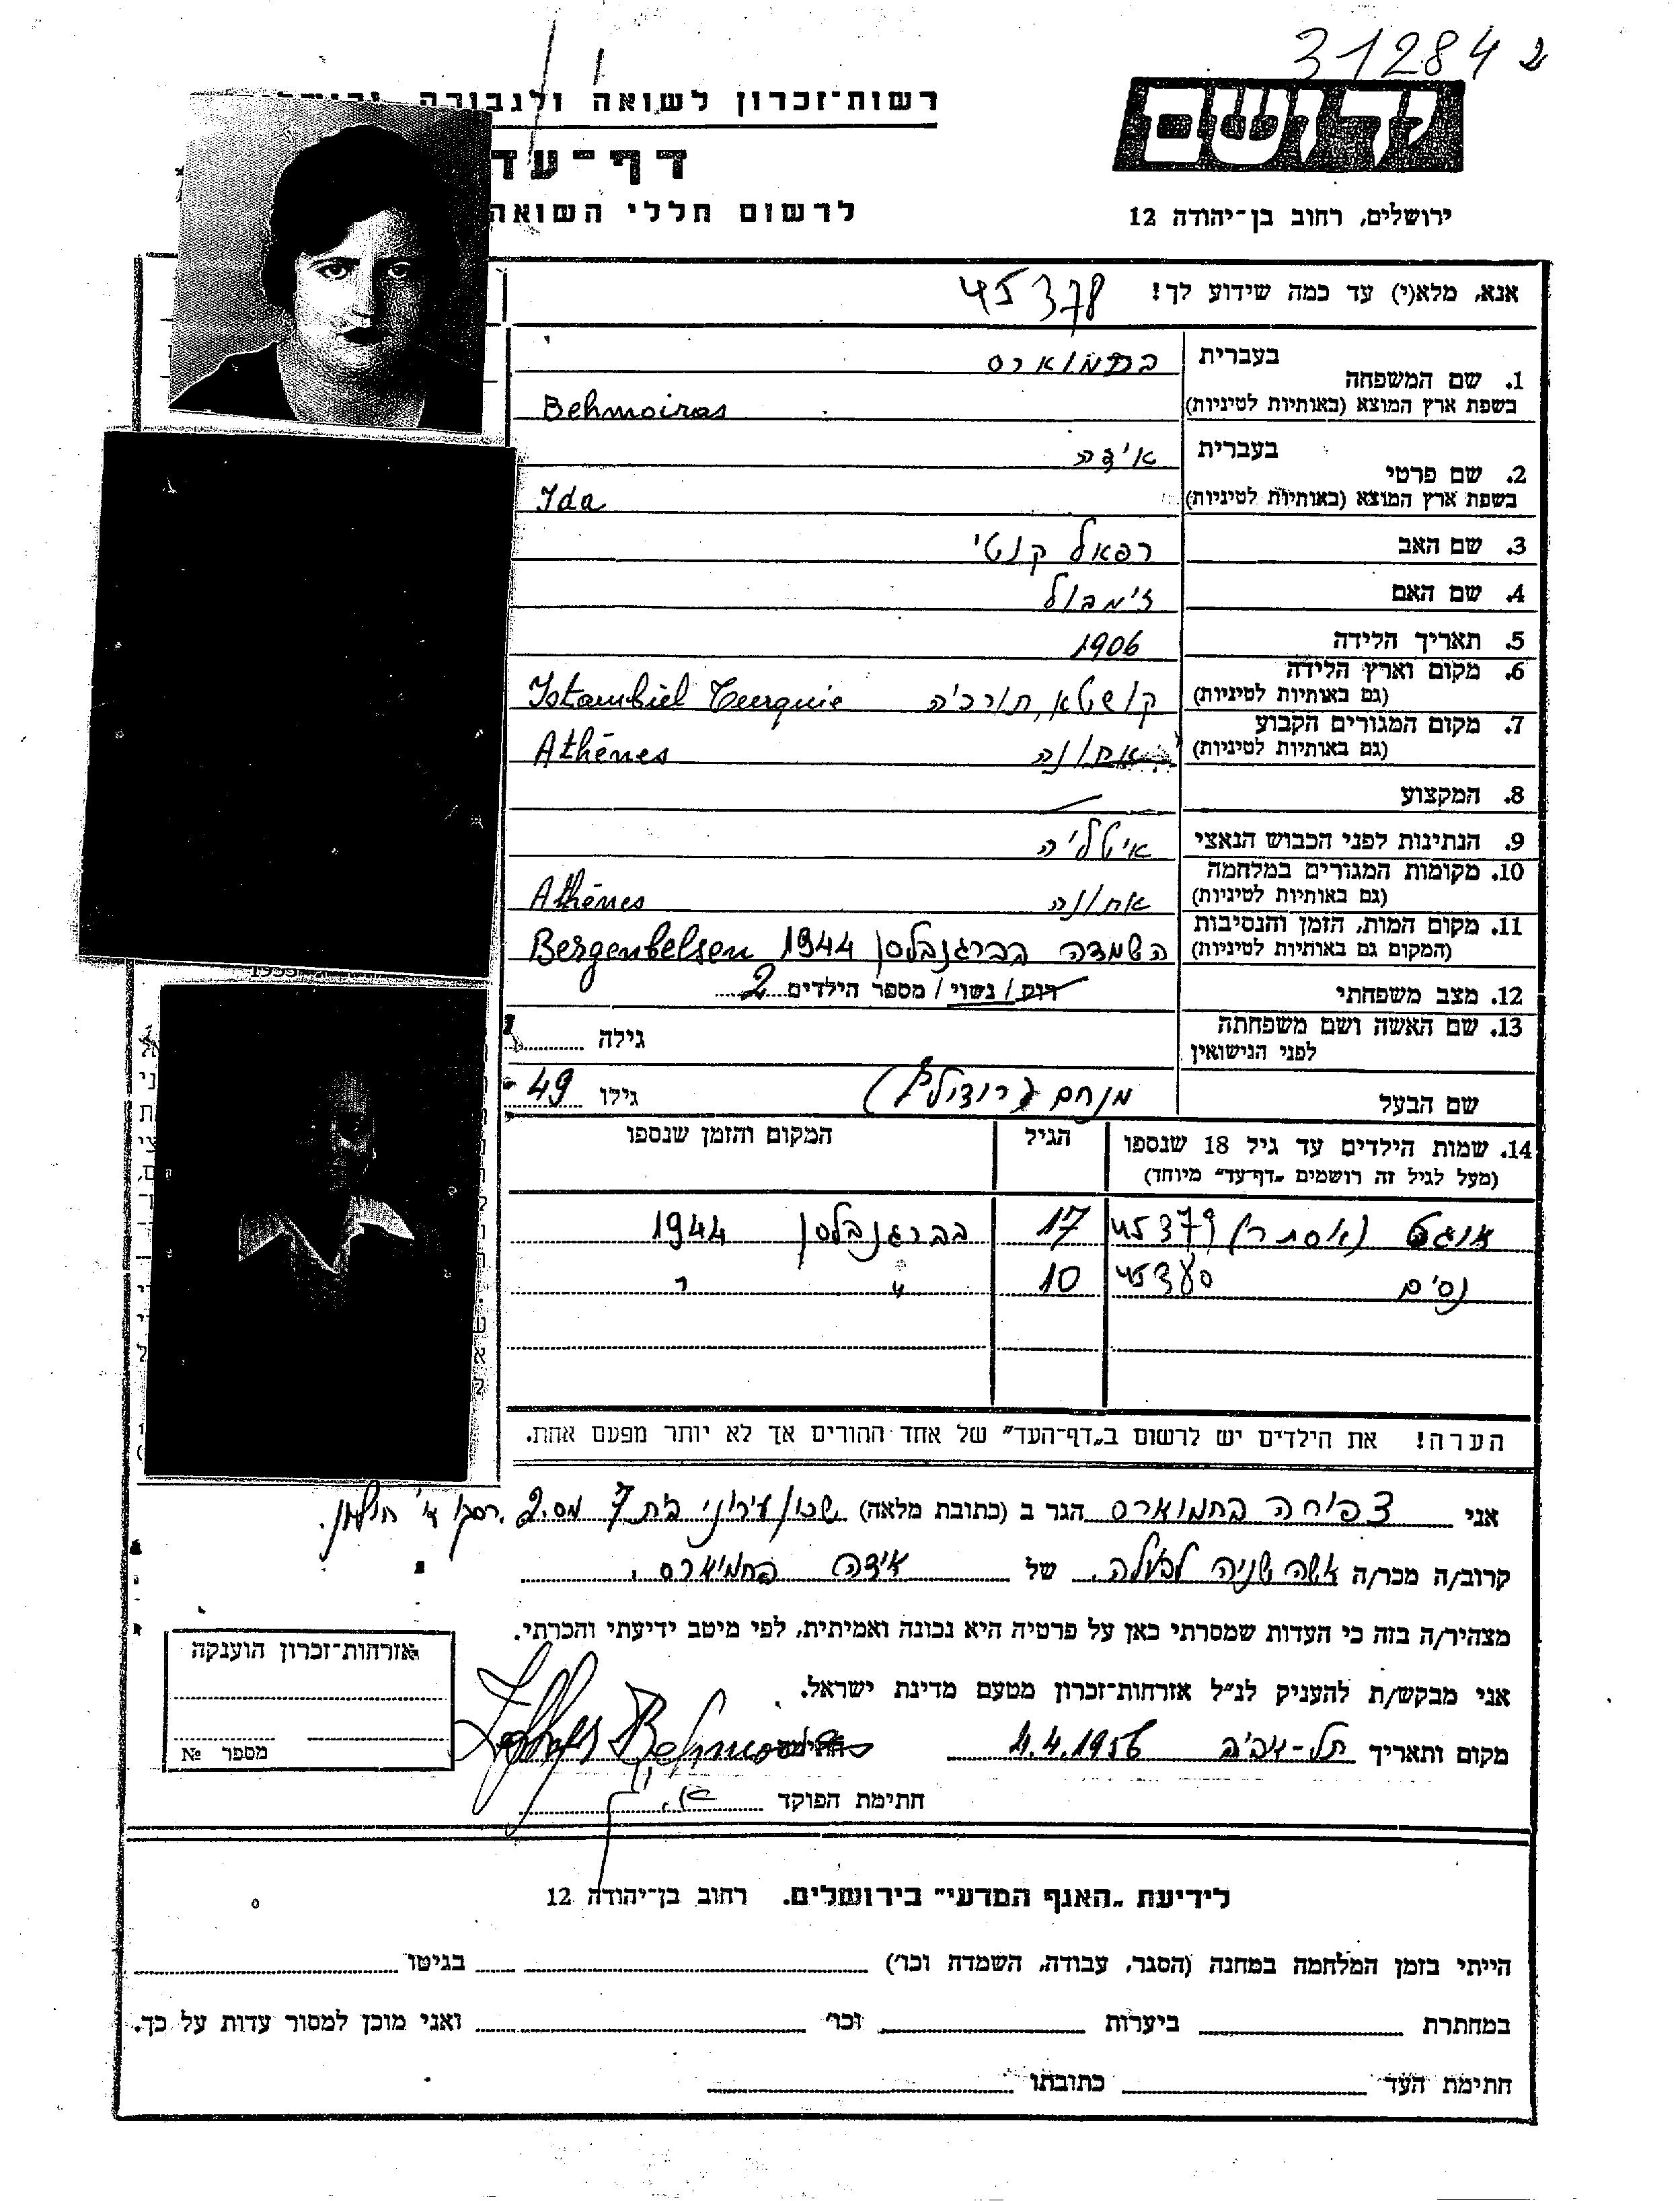 312842
רשות־זכרון לשואה ולגבורה
יד ושם
דף־עד
לרשום חללי השואה
ירושלים, רחוב בן־יהודה 12
אנא, מלא(י) עד כמה שידוע לך! 45378
1. שם המשפחה
בעברית
בחמוארס
בשפת ארץ המוצא (באותיות לטיניות)
Behmoiras
2. שם פרטי
בעברית
אידה
בשפת ארץ המוצא (באותיות לטיניות)
Ida
3. שם האב
רפאל קנטי
4. שם האם
ז'מבול
5. תאריך הלידה
1906
6. מקום וארץ הלידה
(גם באותיות לטיניות)
קושטא, תורכיה Istambul Turquie
7. מקום המגורים הקבוע
(גם באותיות לטיניות)
אתונה Athénes
8. המקצוע
9. הנתינות לפני הכבוש הנאצי
איטליה
10. מקומות המגורים במלחמה
(גם באותיות לטיניות)
אתונה Athénes
11. מקום המות, הזמן והנסיבות
(המקום גם באותיות לטיניות)
השמדה בברגנבלסן 1944 Bergenbelsen
12. מצב משפחתי
רווק / נשוי / מספר הילדים 2
13. שם האשה ושם משפחתה
לפני הנישואין
גילה
שם הבעל
מנחם (רודולף) גילו 49
14. שמות הילדים עד גיל 18 שנספו
(מעל לגיל זה רושמים "דף־עד" מיוחד)
הגיל
המקום והזמן שנספו
אוגט (אסתר) 45379 17 בברגנבלסן 1944
נסים 45380 10 " "
הערה! את הילדים יש לרשום ב"דף־העד" של אחד ההורים אך לא יותר מפעם אחת.
אני צפורה בחמוארס הגר ב (כתובת מלאה) שכון עירוני בית 7 מס. 2. רסקו א' חולון.
קרוב/ה מכר/ה אשה שניה לבעלה. של אידה בחמוארס.
מצהיר/ה בזה כי העדות שמסרתי כאן על פרטיה היא נכונה ואמיתית, לפי מיטב ידיעתי והכרתי.
אני מבקש/ת להעניק לנ"ל אזרחות־זכרון מטעם מדינת ישראל.
מקום ותאריך תל-אביב 4.4.1956 חתימה Behmoiras
חתימת הפוקד
אזרחות־זכרון הוענקה
מספר №
לידיעת "האגף המדעי" בירושלים. רחוב בן־יהודה 12
הייתי בזמן המלחמה במחנה (הסגר, עבודה, השמדה וכו') בגיטו
במחתרת ביערות וכו' ואני מוכן למסור עדות על כך.
חתימת העד כתובתו